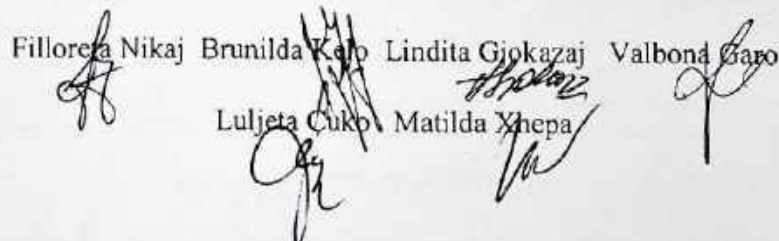 Filloreta Nikaj Brunilda Kelo Lindita Gjokazaj Valbona Garo
Luljeta Cuko Matilda Xhepa